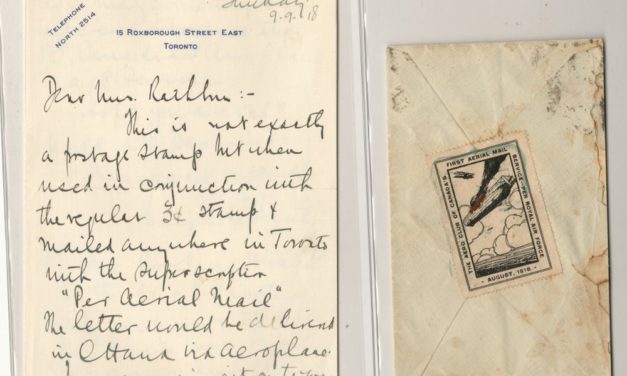 TELEPHONE
NORTH 2514
15 ROXBOROUGH STREET EAST
TORONTO
9.9.18
Dear Mrs. Rathbun:-
This is not exactly
a postage stamp but when
used in conjunction with
the regular 3¢ stamp &
mailed anywhere in Toronto
with the superscription
"Per Aerial Mail"
The letter would be delivered
in Ottawa via aeroplane.
THE AERO CLUB OF CANADA'S
FIRST AERIAL MAIL
SERVICE-PER ROYAL AIR FORCE
- AUGUST, 1918 -